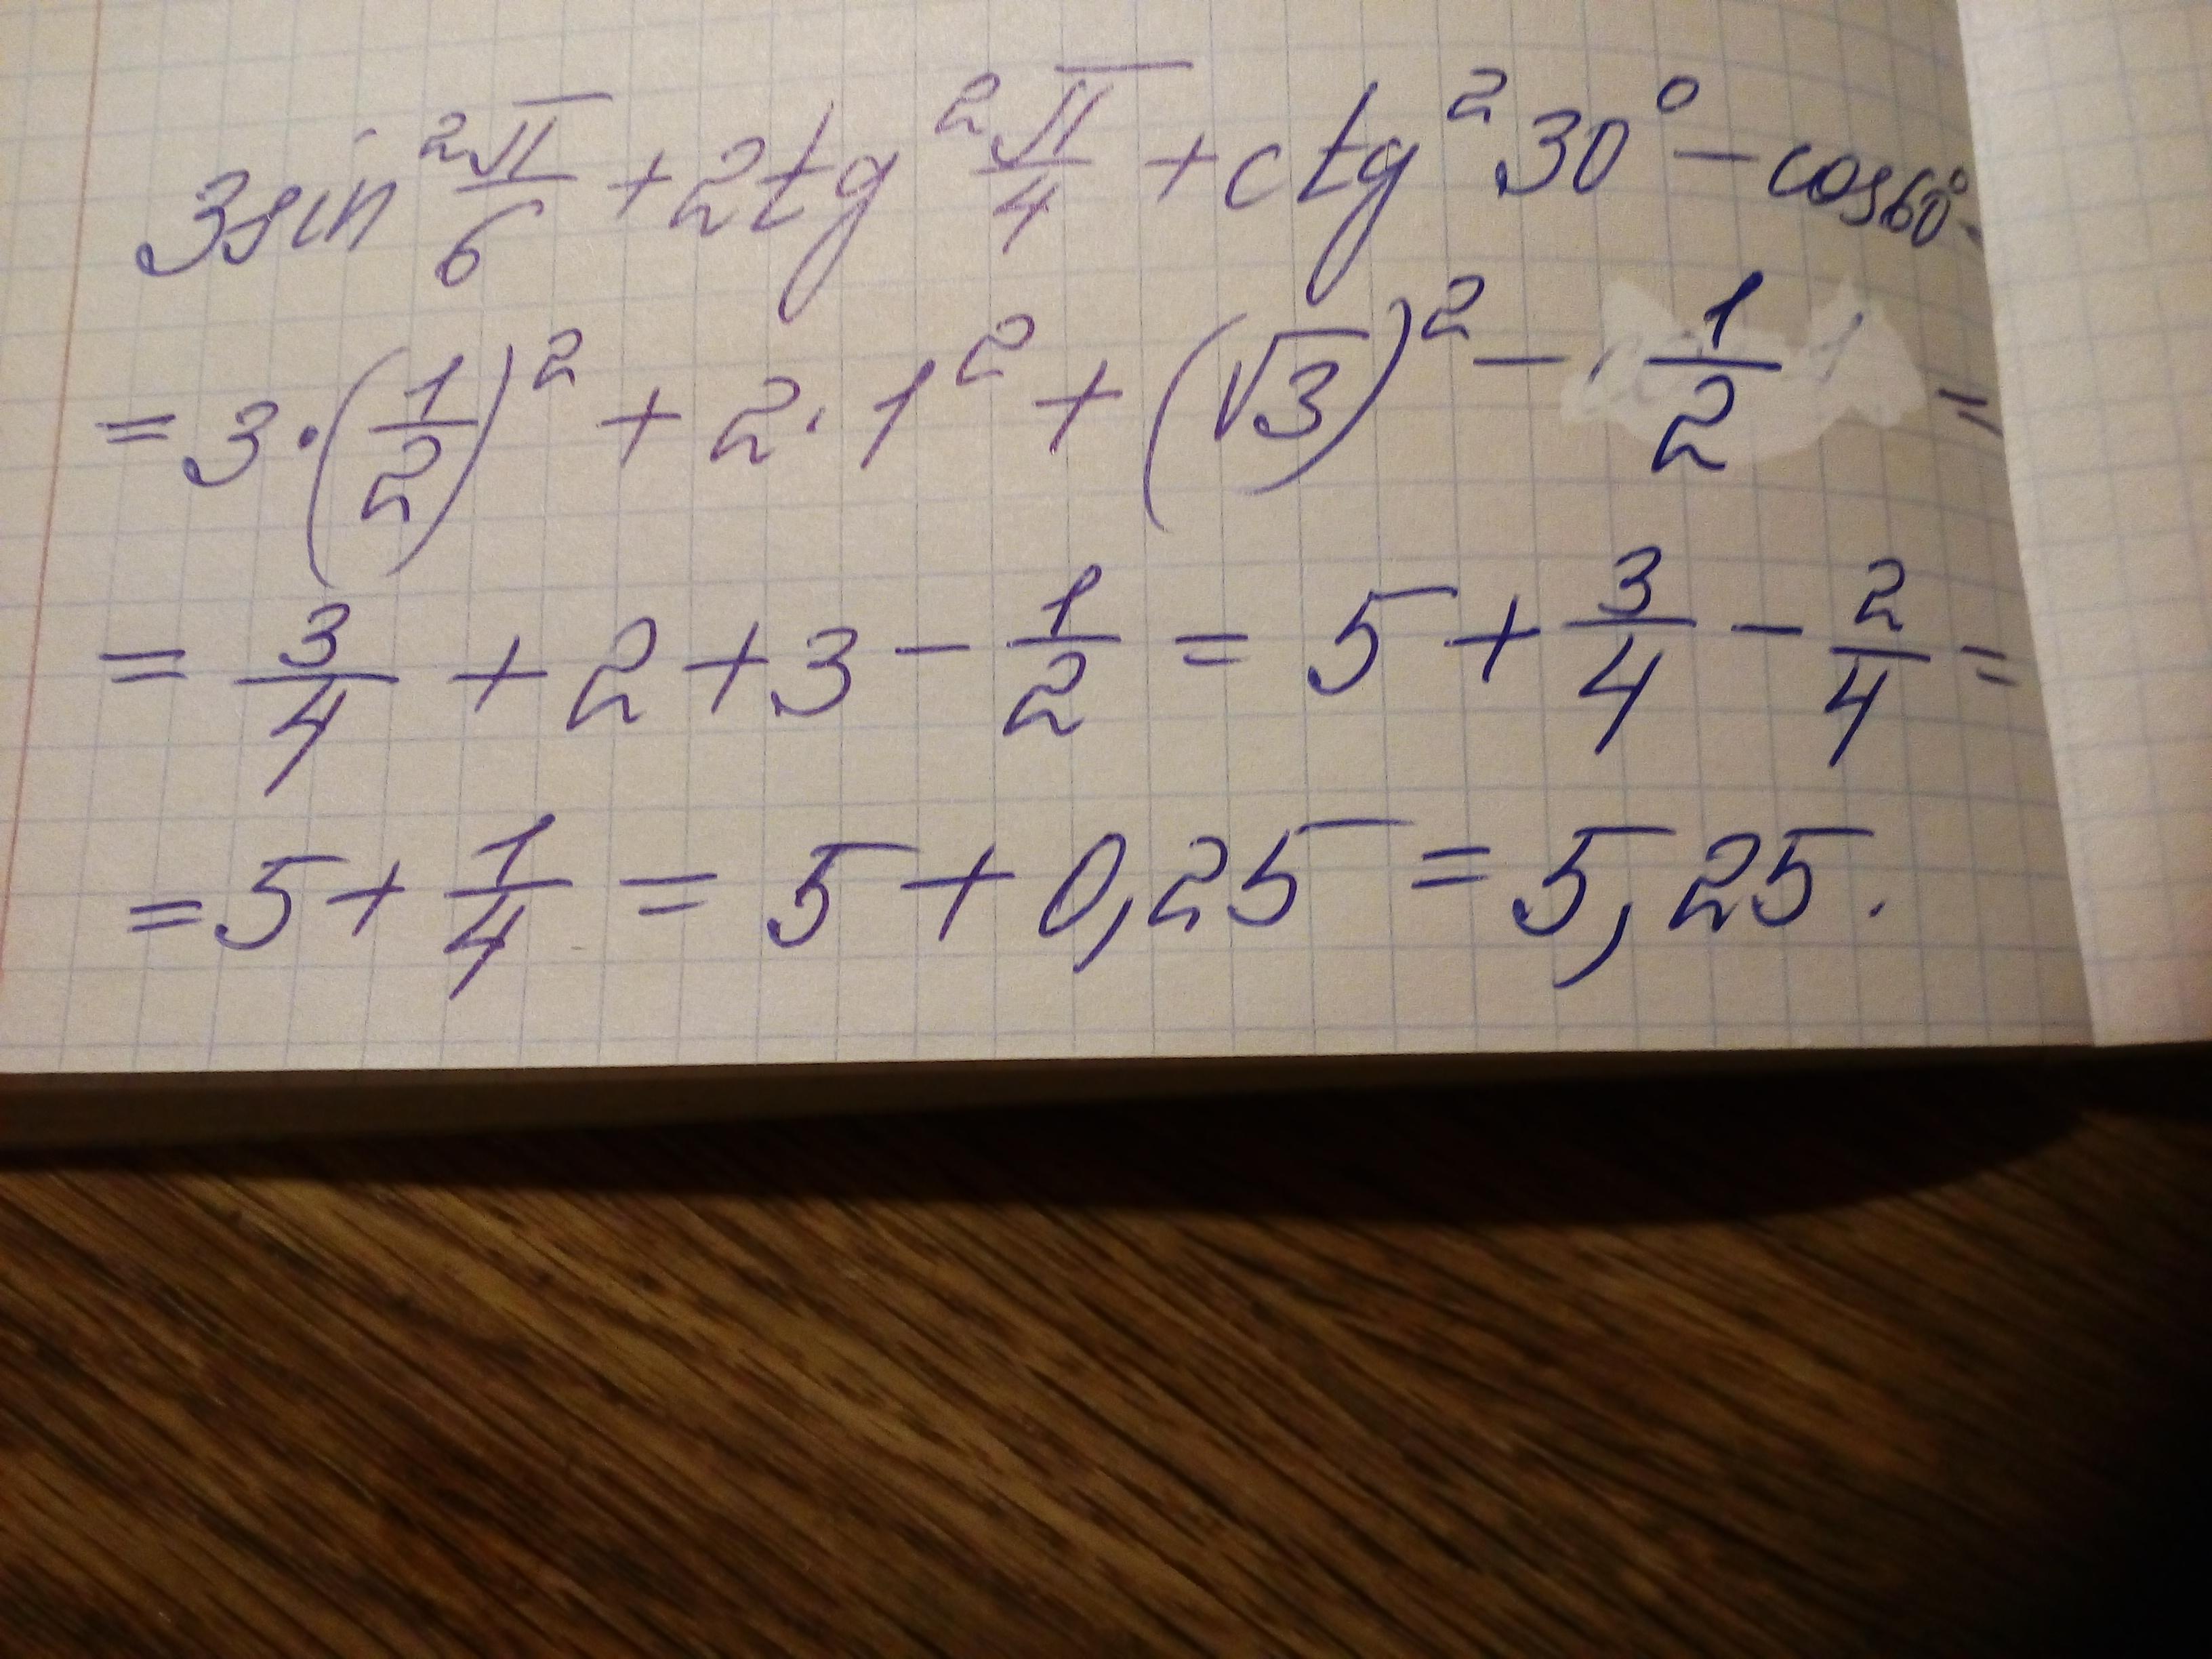 3sin²π/6 + 2tg²π/4 + ctg²30° − cos60° =
= 3·(1/2)² + 2·1² + (√3)² − 1/2 =
= 3/4 + 2 + 3 − 1/2 = 5 + 3/4 − 2/4 =
= 5 + 1/4 = 5 + 0,25 = 5,25.